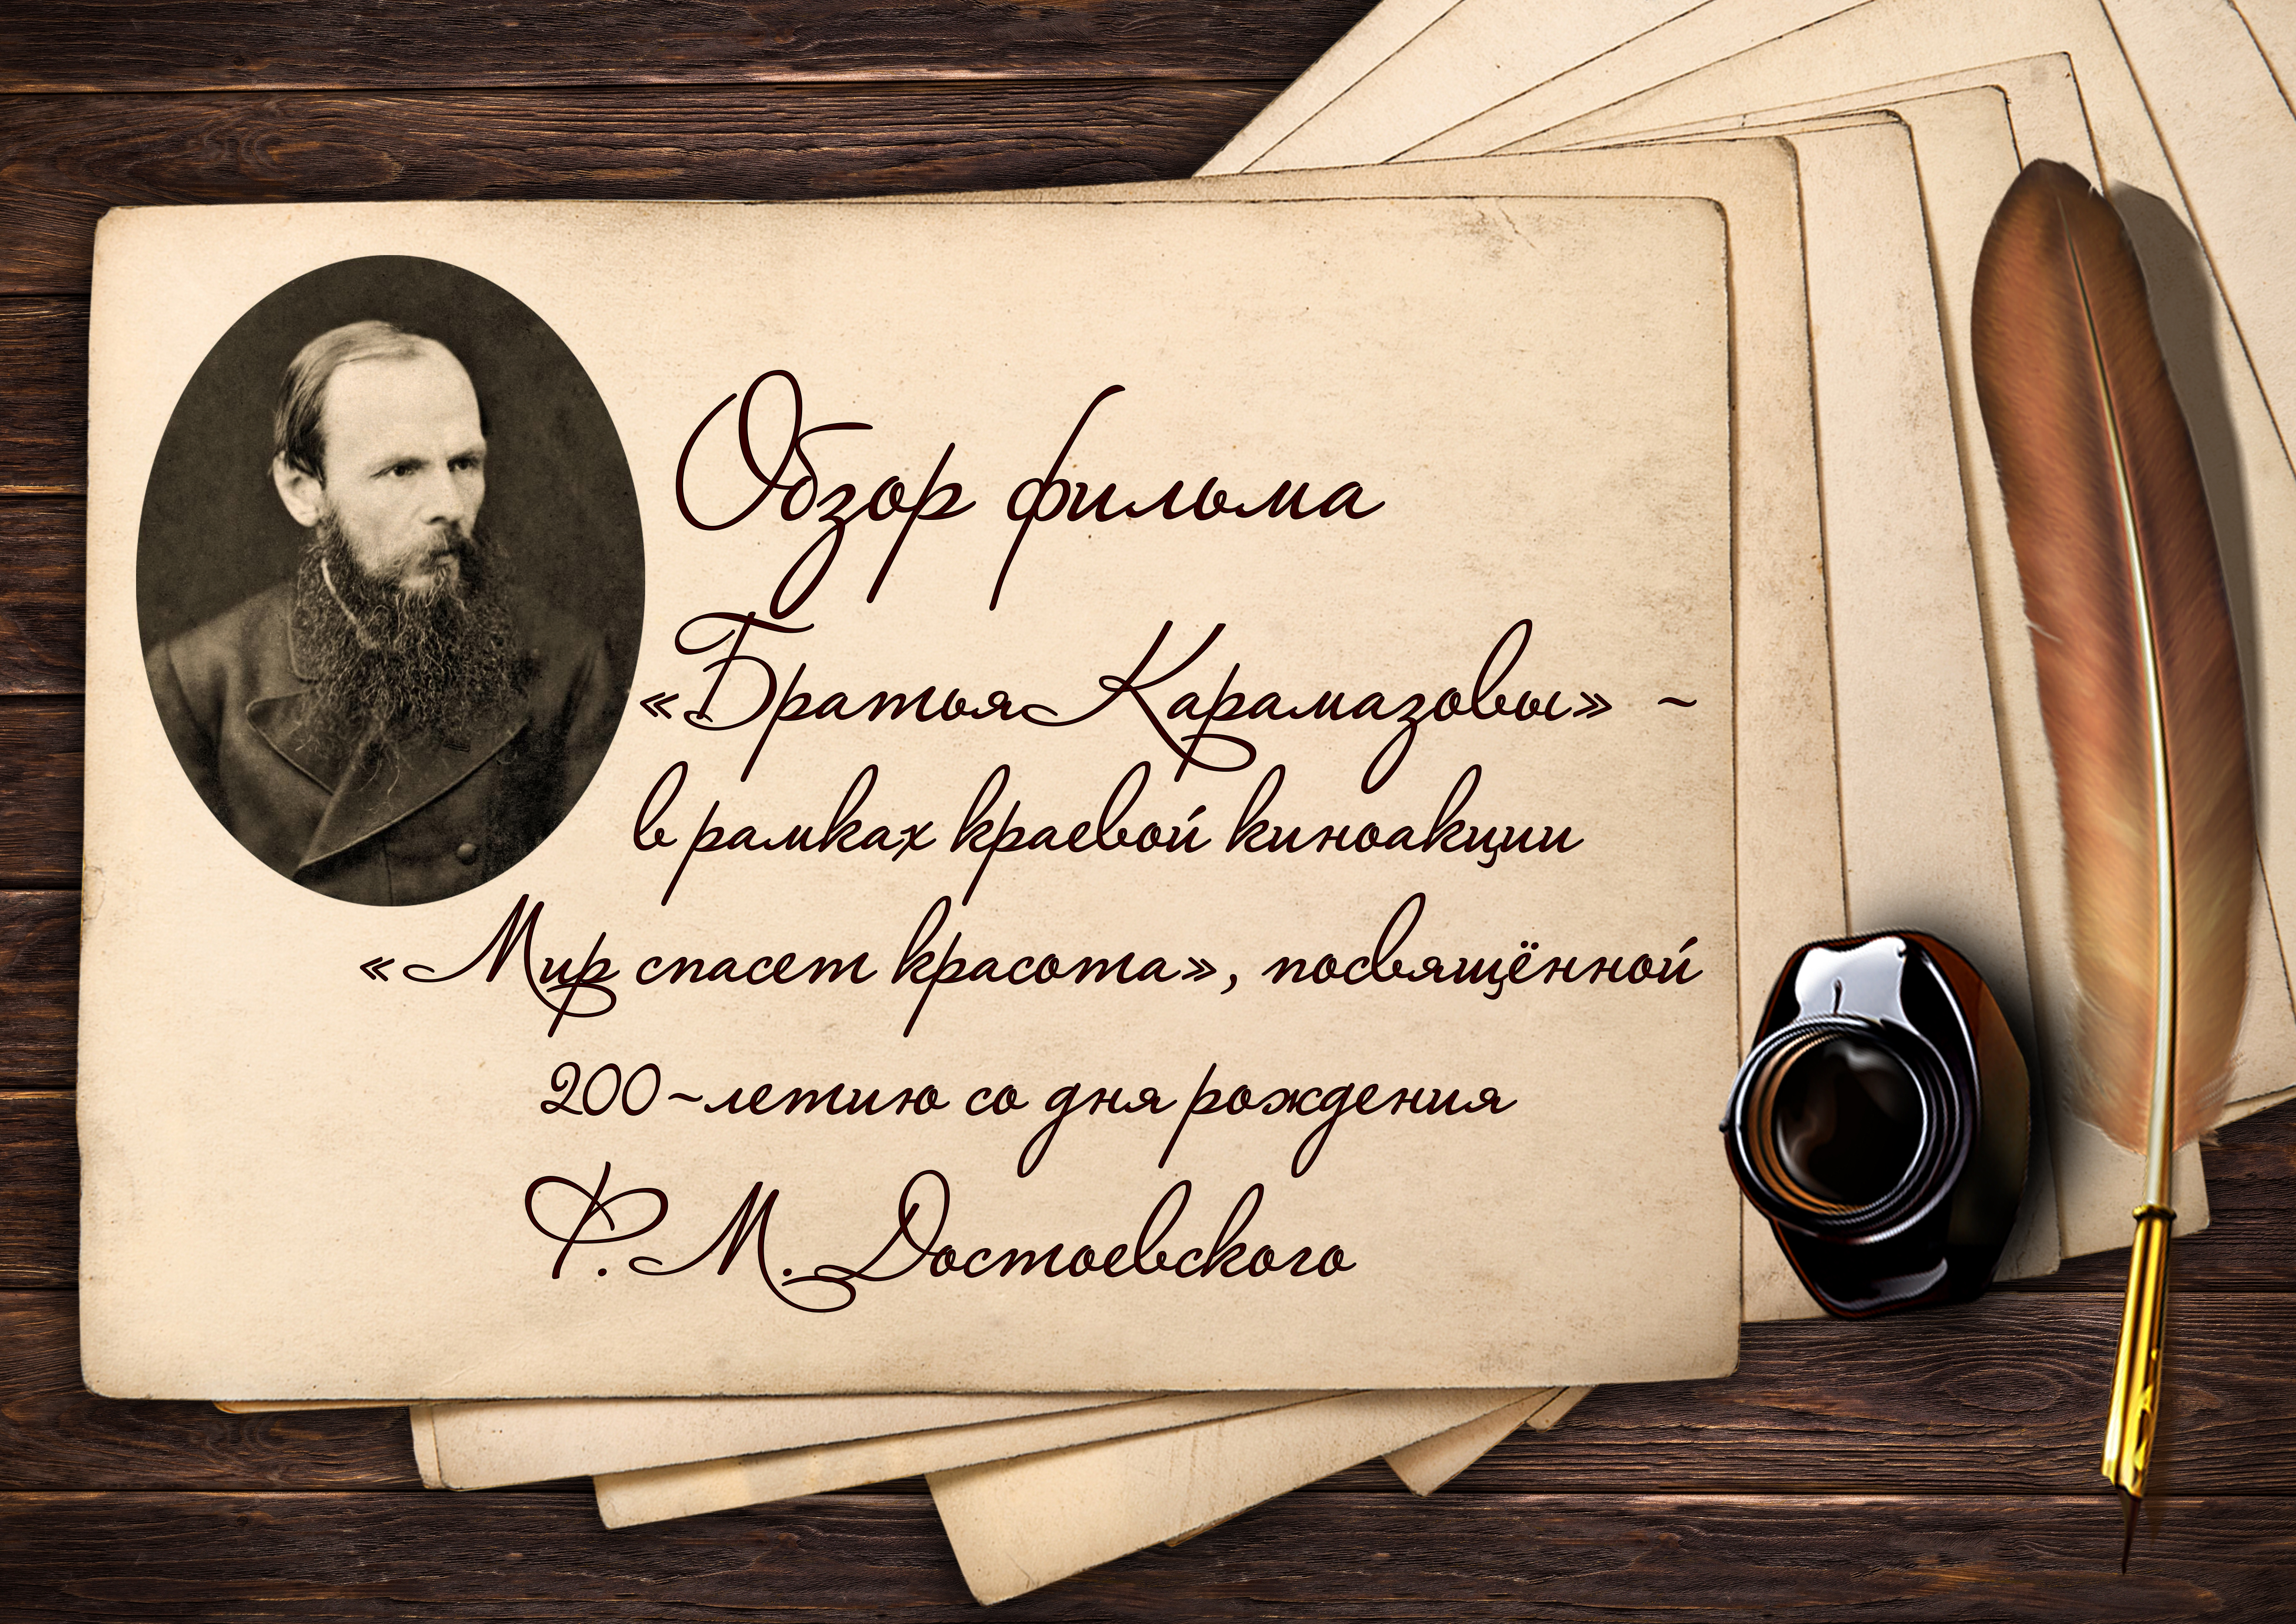 Обзор фильма
«Братья Карамазовы» -
в рамках краевой киноакции
«Мир спасет красота», посвящённой
200-летию со дня рождения
Ф. М. Достоевского